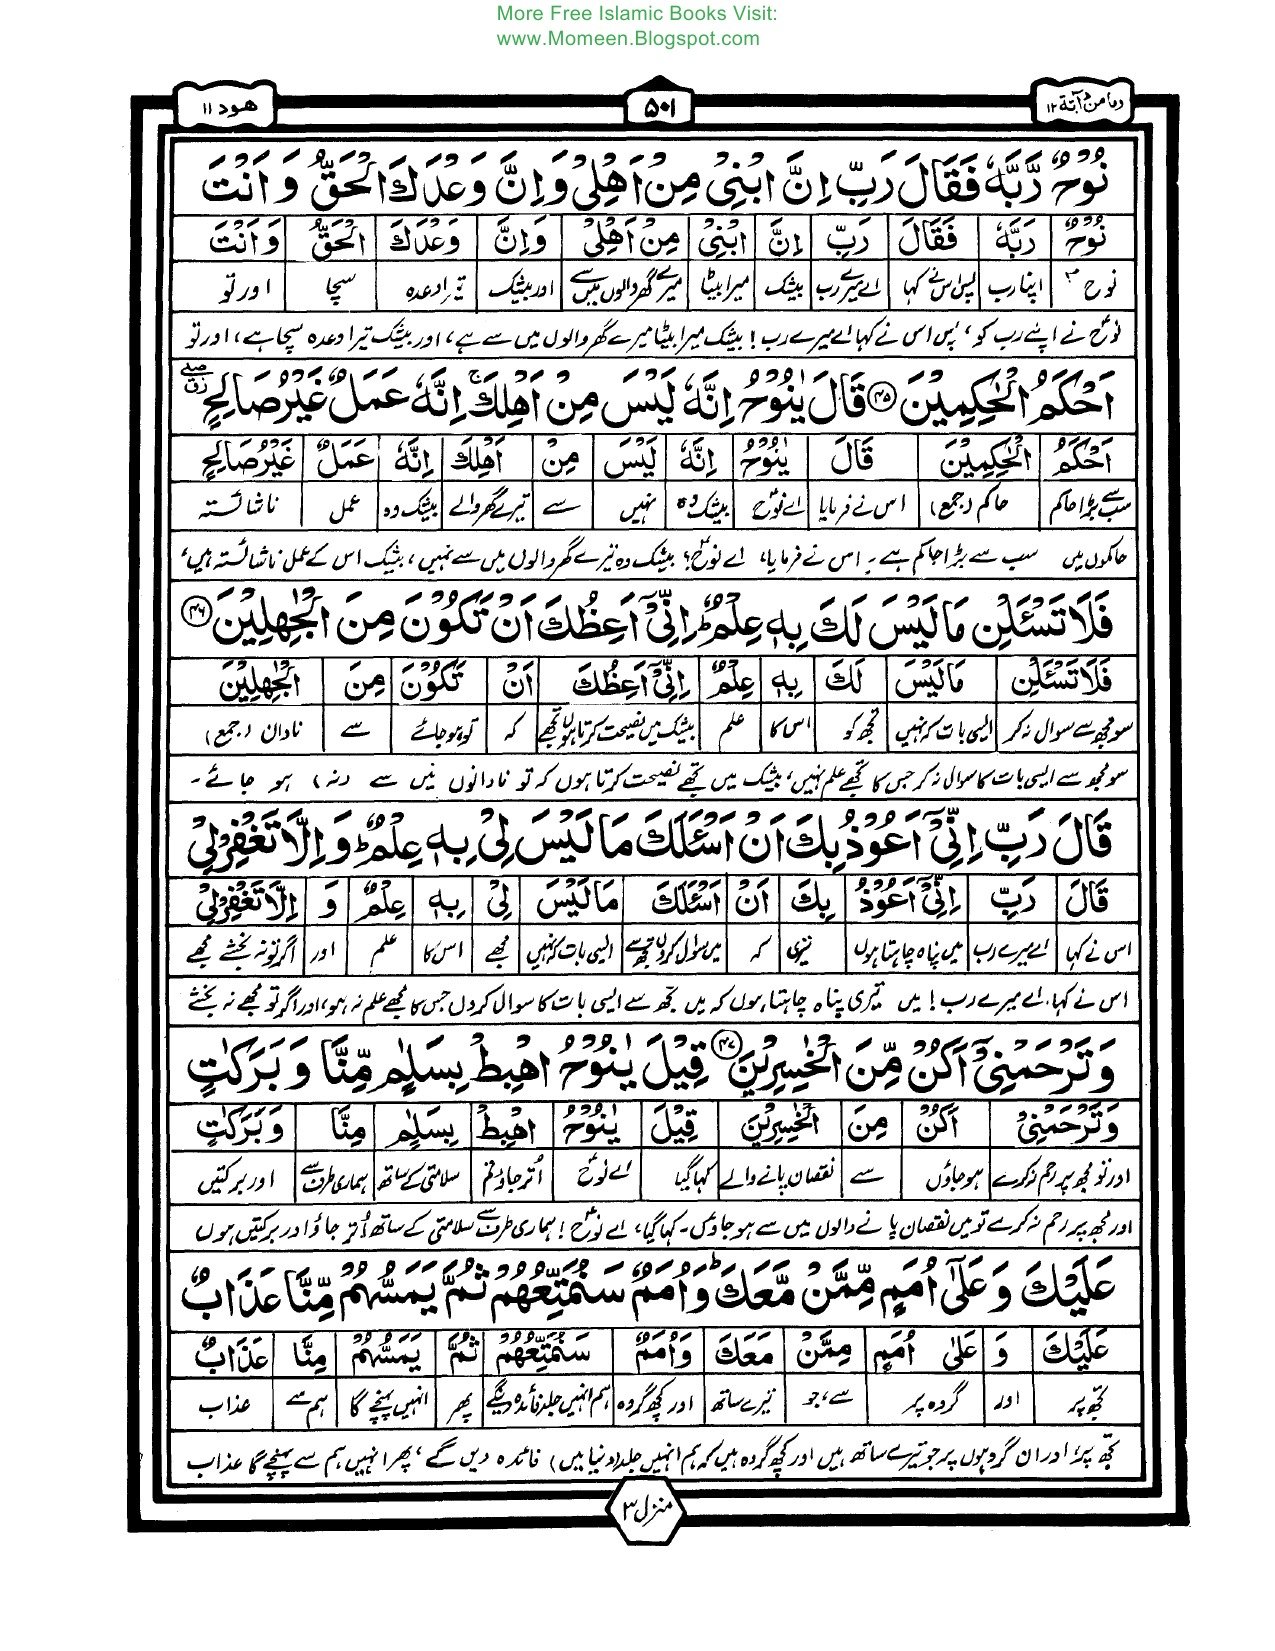 More Free Islamic Books Visit:
www.Momeen.Blogspot.com
ومامن دآبة ۱۲
۵۰۱
هود ۱۱
نُوْحٌ رَّبَّهٗ فَقَالَ رَبِّ اِنَّ ابْنِیْ مِنْ اَهْلِیْ وَاِنَّ وَعْدَكَ الْحَقُّ وَاَنْتَ
نُوْحٌ رَبَّهٗ فَقَالَ رَبِّ اِنَّ ابْنِیْ مِنْ اَهْلِیْ وَاِنَّ وَعْدَكَ الْحَقُّ وَاَنْتَ
نوحؑ اپنا رب پس اس نے کہا اے میرے رب بیشک میرا بیٹا میرے گھر والوں میں سے اور بیشک تیرا وعدہ سچا اور تو
نوحؑ نے اپنے رب کو، پس اس نے کہا اے میرے رب! بیشک میرا بیٹا میرے گھر والوں میں سے ہے، اور بیشک تیرا وعدہ سچا ہے، اور تو
اَحْكَمُ الْحٰكِمِیْنَ ۴۵ قَالَ یٰنُوْحُ اِنَّهٗ لَیْسَ مِنْ اَهْلِكَ ۚ اِنَّهٗ عَمَلٌ غَیْرُ صَالِحٍ
اَحْكَمُ الْحٰكِمِیْنَ قَالَ یٰنُوْحُ اِنَّهٗ لَیْسَ مِنْ اَهْلِكَ اِنَّهٗ عَمَلٌ غَیْرُ صَالِحٍ
سب سے بڑا حاکم حاکم (جمع) اس نے فرمایا اے نوحؑ بیشک وہ نہیں سے تیرے گھر والے بیشک وہ عمل ناشائستہ
حاکموں میں سب سے بڑا حاکم ہے۔ اس نے فرمایا، اے نوحؑ! بیشک وہ تیرے گھر والوں میں سے نہیں، بیشک اس کے عمل ناشائستہ ہیں،
فَلَا تَسْـَٔلْنِ مَا لَیْسَ لَكَ بِهٖ عِلْمٌ ؕ اِنِّیْۤ اَعِظُكَ اَنْ تَكُوْنَ مِنَ الْجٰهِلِیْنَ ۴۶
فَلَا تَسْـَٔلْنِ مَا لَیْسَ لَكَ بِهٖ عِلْمٌ اِنِّیْۤ اَعِظُكَ اَنْ تَكُوْنَ مِنَ الْجٰهِلِیْنَ
سو مجھ سے سوال نہ کر ایسی بات کہ نہیں تجھ کو اس کا علم بیشک میں نصیحت کرتا ہوں تجھے کہ تو ہو جائے سے نادان (جمع)
سو مجھ سے ایسی بات کا سوال نہ کر جس کا تجھے علم نہیں، بیشک میں تجھے نصیحت کرتا ہوں کہ تو نادانوں میں سے (نہ) ہو جائے۔
قَالَ رَبِّ اِنِّیْۤ اَعُوْذُ بِكَ اَنْ اَسْـَٔلَكَ مَا لَیْسَ لِیْ بِهٖ عِلْمٌ ؕ وَ اِلَّا تَغْفِرْ لِیْ
قَالَ رَبِّ اِنِّیْۤ اَعُوْذُ بِكَ اَنْ اَسْـَٔلَكَ مَا لَیْسَ لِیْ بِهٖ عِلْمٌ وَ اِلَّا تَغْفِرْ لِیْ
اس نے کہا اے میرے رب میں پناہ چاہتا ہوں تیری کہ میں سوال کروں تجھ سے ایسی بات کہ نہیں مجھے اس کا علم اور اگر تو نہ بخشے مجھے
اس نے کہا، اے میرے رب! میں تیری پناہ چاہتا ہوں کہ میں تجھ سے ایسی بات کا سوال کروں جس کا مجھے علم نہ ہو، اور اگر تو مجھے نہ بخشے
وَ تَرْحَمْنِیْۤ اَكُنْ مِّنَ الْخٰسِرِیْنَ ۴۷ قِیْلَ یٰنُوْحُ اهْبِطْ بِسَلٰمٍ مِّنَّا وَ بَرَكٰتٍ
وَ تَرْحَمْنِیْۤ اَكُنْ مِنَ الْخٰسِرِیْنَ قِیْلَ یٰنُوْحُ اهْبِطْ بِسَلٰمٍ مِنَّا وَ بَرَكٰتٍ
اور تو مجھ پر رحم نہ کرے ہو جاؤں سے نقصان پانے والے کہا گیا اے نوحؑ اُتر جاؤ تم سلامتی کے ساتھ ہماری طرف سے اور برکتیں
اور مجھ پر رحم نہ کرے تو میں نقصان پانے والوں میں سے ہو جاؤں۔ کہا گیا، اے نوحؑ! ہماری طرف سے سلامتی کے ساتھ اُتر جاؤ اور برکتیں ہوں
عَلَیْكَ وَ عَلٰۤی اُمَمٍ مِّمَّنْ مَّعَكَ ؕ وَ اُمَمٌ سَنُمَتِّعُهُمْ ثُمَّ یَمَسُّهُمْ مِّنَّا عَذَابٌ
عَلَیْكَ وَ عَلٰی اُمَمٍ مِمَّنْ مَعَكَ وَ اُمَمٌ سَنُمَتِّعُهُمْ ثُمَّ یَمَسُّهُمْ مِنَّا عَذَابٌ
تجھ پر اور گروہ پر سے، جو تیرے ساتھ اور کچھ گروہ ہم انہیں جلد فائدہ دینگے پھر انہیں پہنچے گا ہم سے عذاب
تجھ پر، اور ان گروہوں پر جو تیرے ساتھ ہیں اور کچھ گروہ ہیں کہ ہم انہیں جلد (دنیا میں) فائدہ دیں گے، پھر انہیں ہم سے پہنچے گا عذاب
منزل ۳